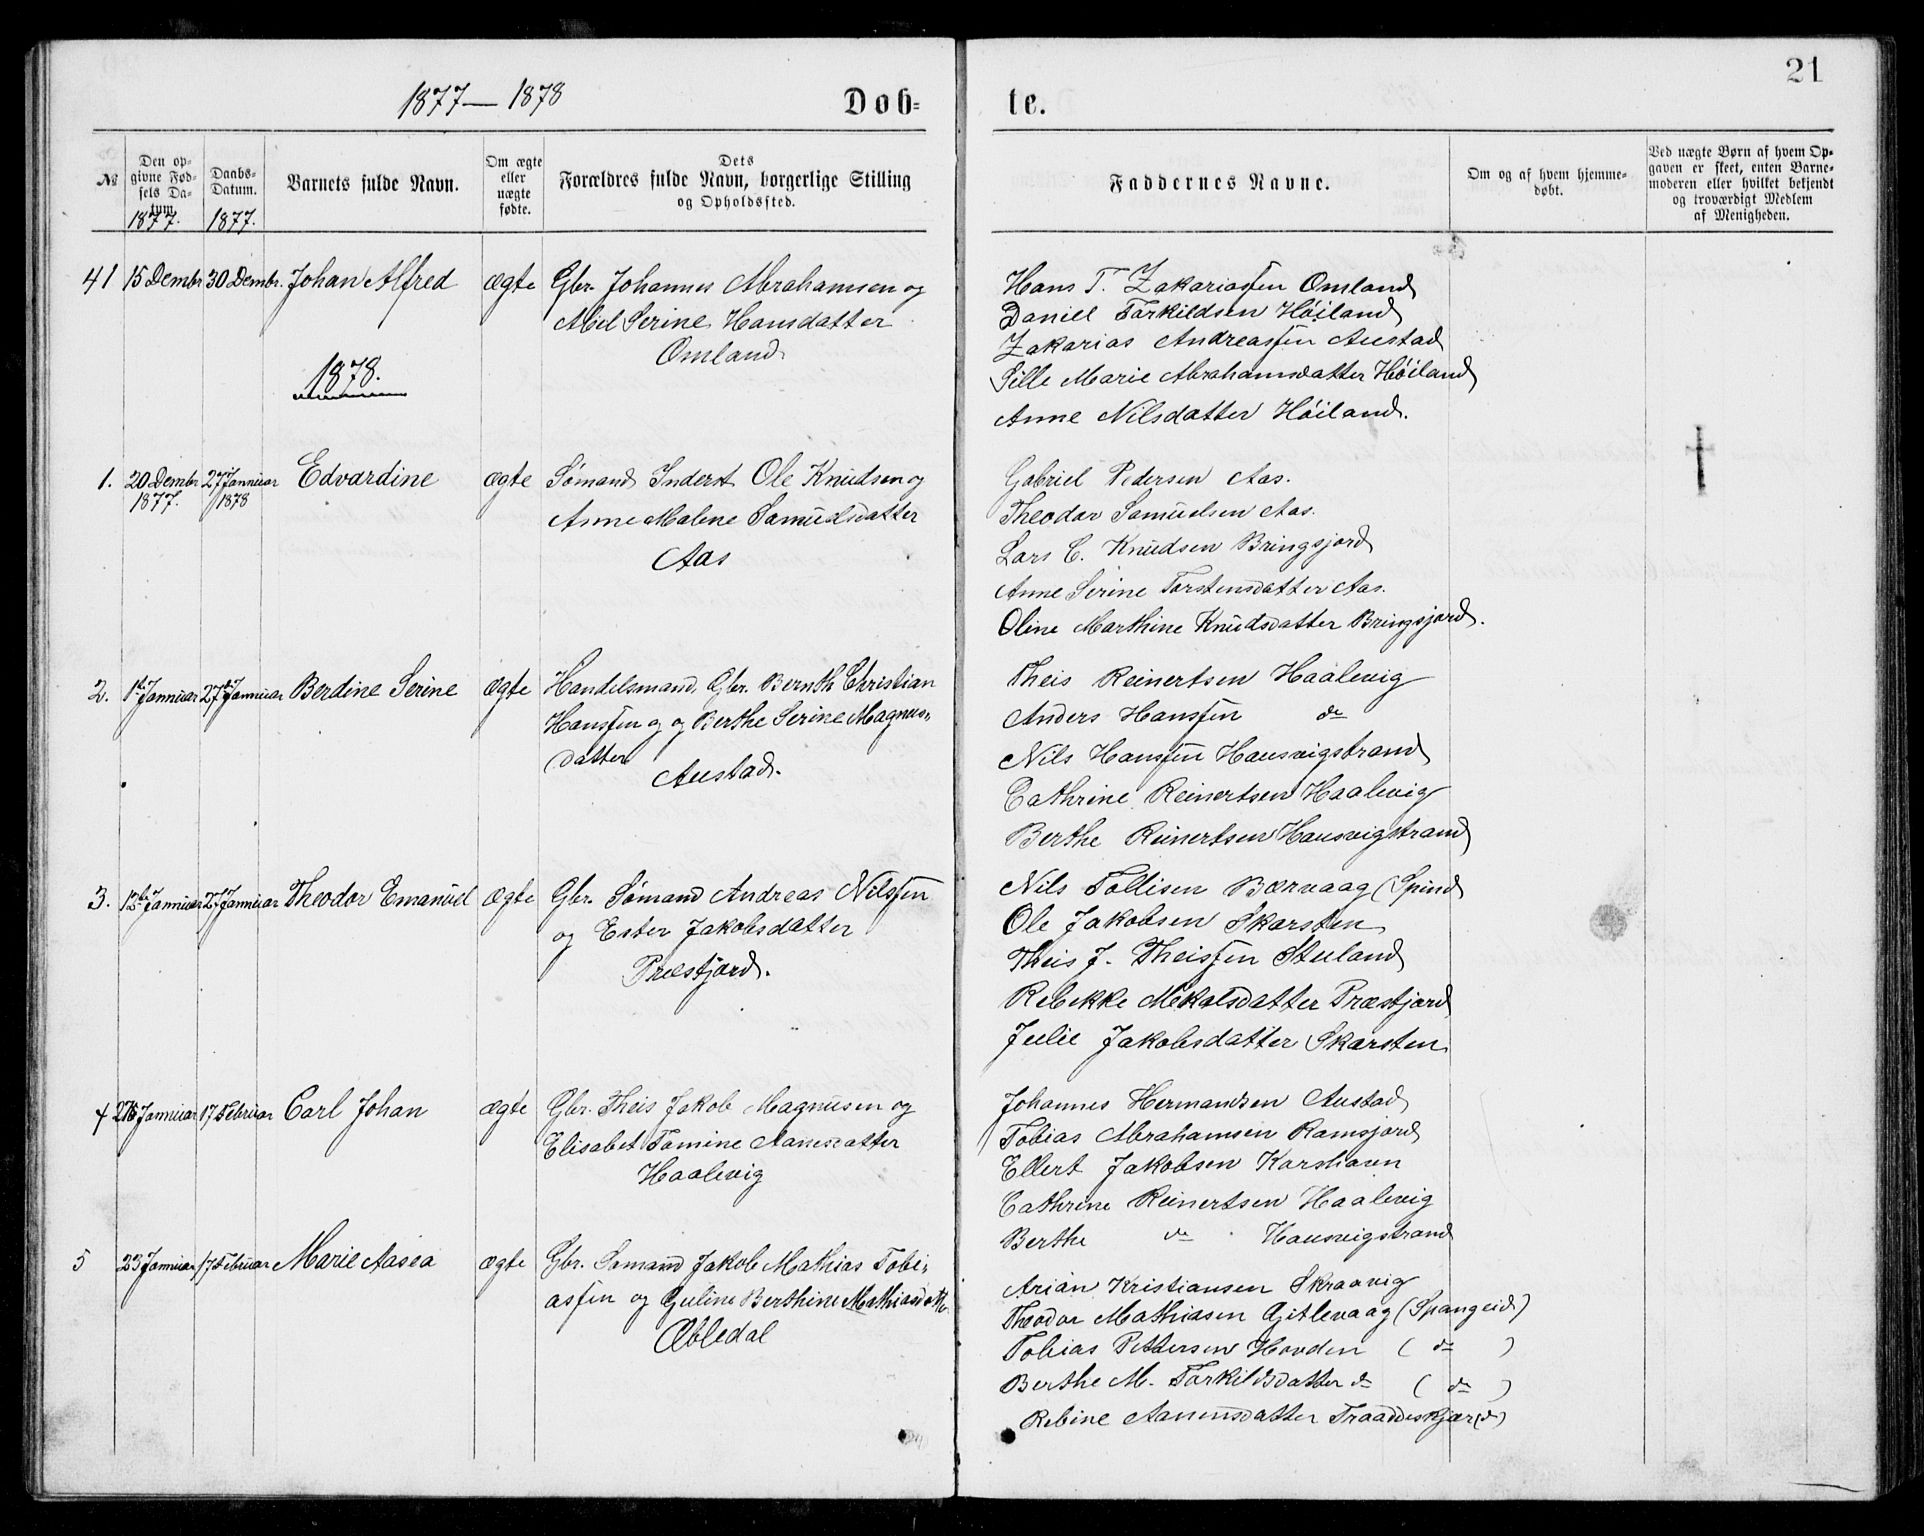 21
1877 — 1878
Døb-
te.
№
Den op-
givne Fød-
sels Da-
tum.
1877.
Daabs-
Datum.
1877.
Barnets fulde Navn.
Om ægte
eller
uægte
fødte.
Dets
Forældres fulde Navn, borgerlige Stilling
og Opholdssted.
Faddernes Navne.
Om og af hvem hjemme-
døbt.
Ved uægte Børn af hvem Op-
gaven er skeet, enten Barne-
moderen eller hvilket bekjendt
og troværdigt Medlem
af Menigheden.
41 15 Dembr 30 Dembr. Johan Alfred ægte Gbr. Johannes Abrahamsen og
Abel Serine Hansdatter
Omland
Hans T. Zakariassen Omland
Daniel Tarkildsen Høiland
Zakarias Andreassen Austad
Sille Marie Abrahamsdatter Høiland
Anne Nilsdatter Høiland.
1878.
1. 20 Dembr 1877. 27 Januar 1878 Edvardine ægte Sømand Inderst Ole Knudsen og
Anne Malene Samuelsdatter
Aas
Gabriel Pedersen Aas.
Theodor Samuelsen Aas.
Lars C. Knudsen Bringsjord
Anne Serine Torstensdatter Aas.
Oline Marthine Knudsdatter Bringsjord.
2. 1ste Januar 27de Januar Berdine Serine ægte Handelsmand, Gbr. Bernth Christian
Hanssen og og Berthe Serine Magnus-
datter
Austad.
Theis Reinertsen Haalevig
Anders Hanssen do
Nils Hanssen Hausvigstrand
Cathrine Reinertsen Haalevig
Berthe Reinertsen Hausvigstrand
3. 12te Januar 27 Januar Theodor Emanuel ægte Gbr. Sømand Andreas Nilssen
og Ester Jakobsdatter
Præstjord.
Nils Tollisen Bærvaag (Spind
Ole Jakobsen Skarsten
Theis J. Theissen Stuland
Rebekke Mekalsdatter Præstjord
Julie Jakobsdatter Skarsten
4 Januar 17 Februar Carl Johan ægte Gbr. Theis Jakob Magnusen og
Elisabet Tomine Aanesdatter
Haalevig
Johannes Hermandsen Austad
Tobias Abrahamsen Ramsjord
Ellert Jakobsen Korshavn
Cathrine Reinertsen Haalevig
Berthe do Hausvigstrand
5 23 Januar 17 Februar Marie Aasea ægte Gbr. Sømand Jakob Mathias Tobi-
assen og Guline Berthine Mathiasdatter
Æbledal
Arian Kristiansen Skraavig
Theodor Mathiasen Gjitlevaag (Spangeid)
Tobias Pettersen Hovden ( do )
Berthe M. Tarkildsdatter do ( do )
Rebine Aanensdatter Traaddeskjær (do)